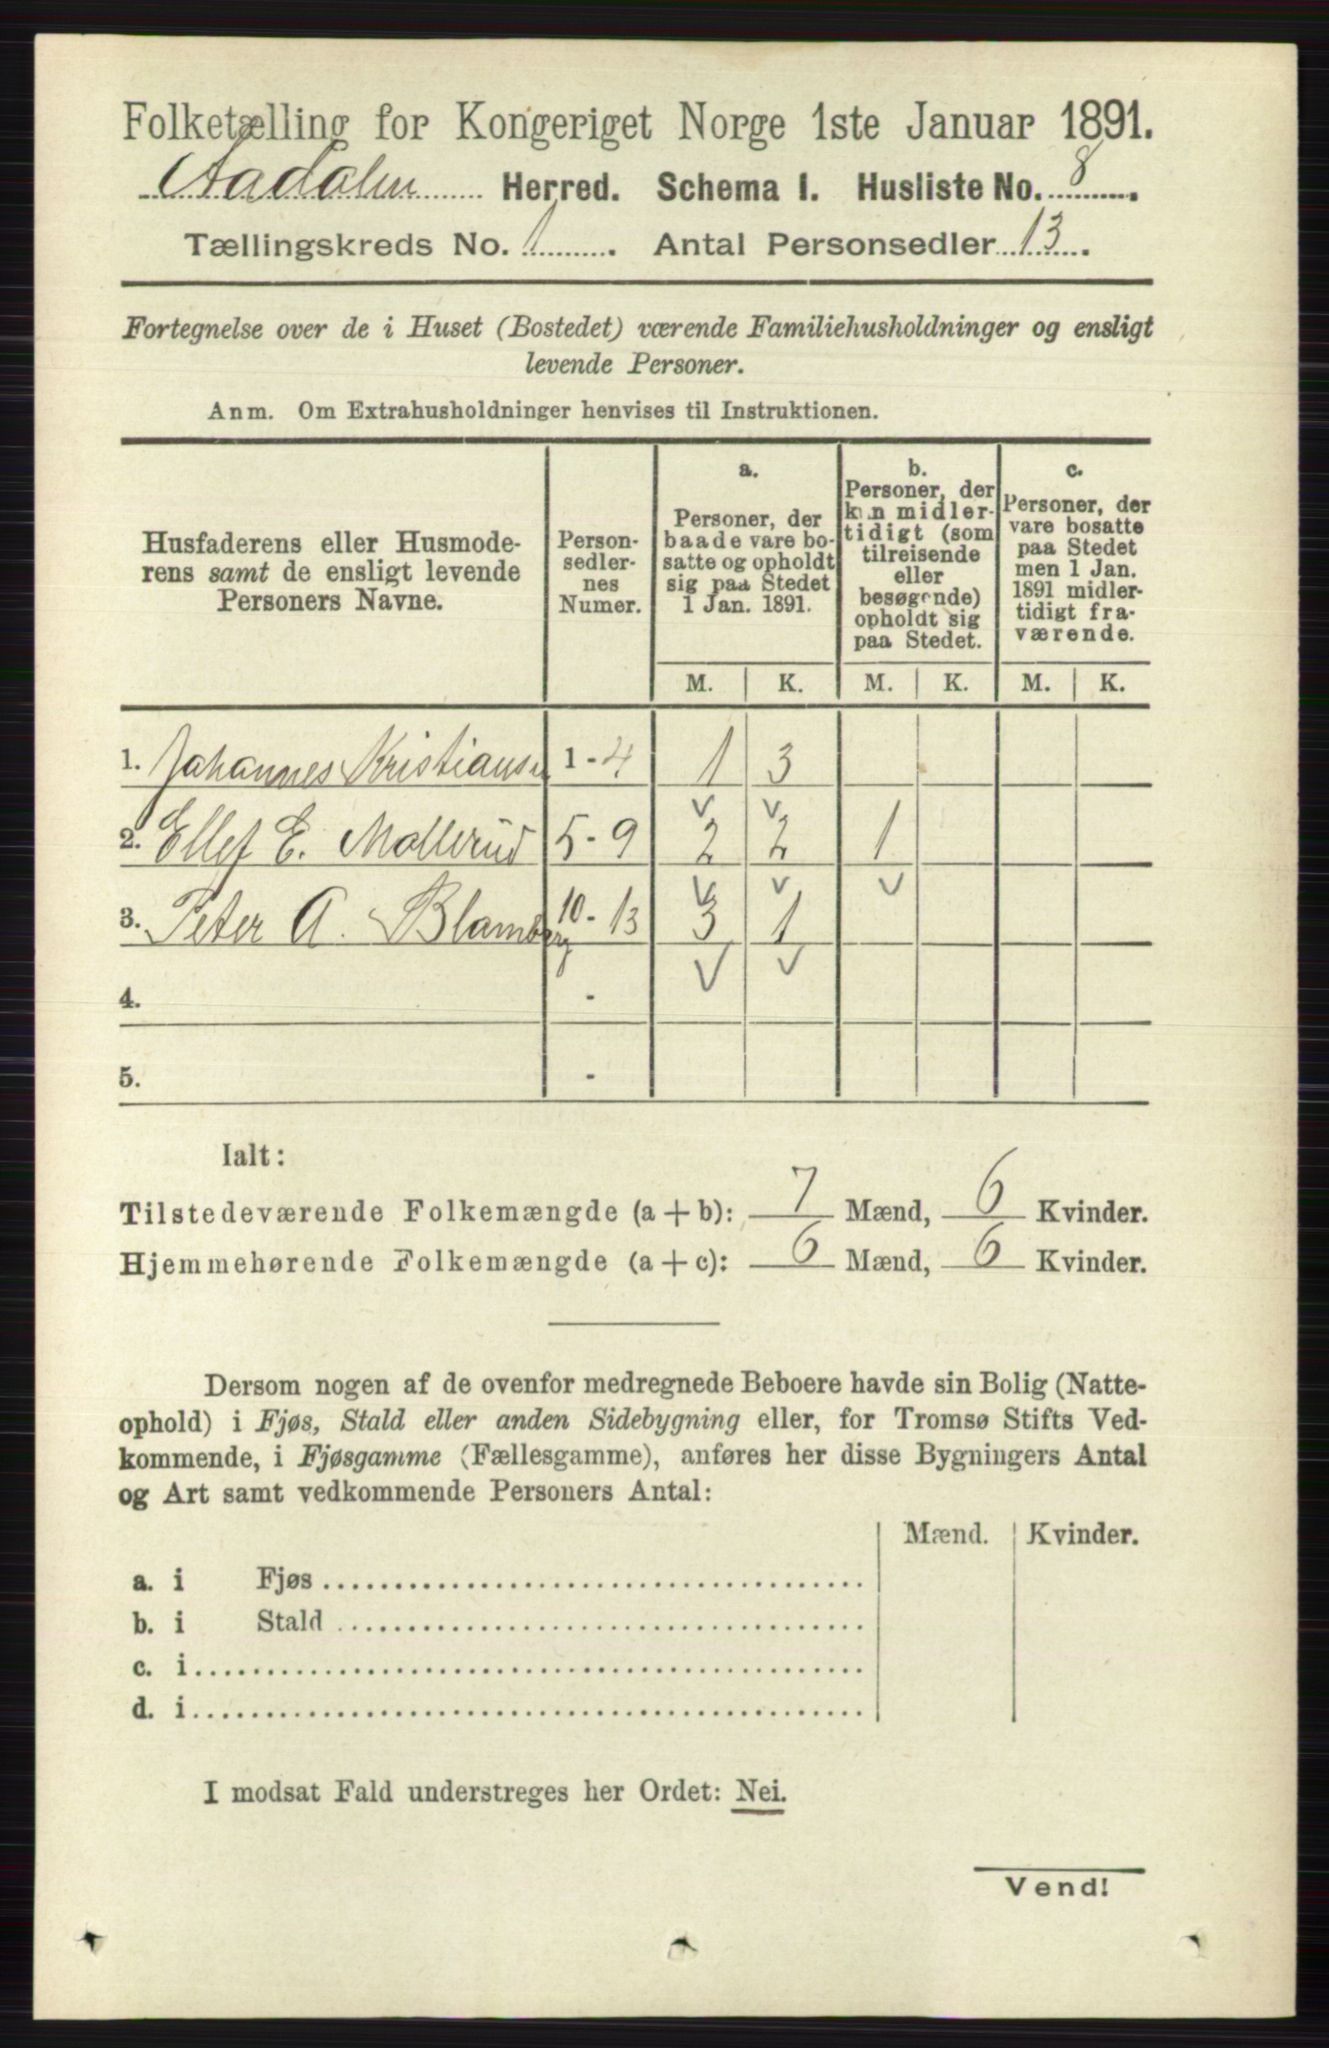 Folketælling for Kongeriget Norge 1ste Januar 1891.
Aadalen Herred. Schema I. Husliste No. 8.
Tællingskreds No. 1. Antal Personsedler 13.
Fortegnelse over de i Huset (Bostedet) værende Familiehusholdninger og ensligt
levende Personer.
Anm. Om Extrahusholdninger henvises til Instruktionen.
Husfaderens eller Husmode-
rens samt de ensligt levende
Personers Navne.
Person-
sedler-
nes
Numer.
a.
Personer, der
baade vare bo-
satte og opholdt
sig paa Stedet
1 Jan. 1891.
b.
Personer, der
kun midler-
tidigt (som
tilreisende
eller
besøgende)
opholdt sig
paa Stedet.
c.
Personer, der
vare bosatte
paa Stedet
men 1 Jan.
1891 midler-
tidigt fra-
værende.
M. K. M. K. M. K.
1. Johannes Kristiansen 1-4 1 3
2. Ellef E. Mollerud 5-9 2 2 1
3. Peter A. Blamberg 10-13 3 1
4. -
5. -
Ialt:
Tilstedeværende Folkemængde (a+b): 7 Mænd, 6 Kvinder.
Hjemmehørende Folkemængde (a+c): 6 Mænd, 6 Kvinder.
Dersom nogen af de ovenfor medregnede Beboere havde sin Bolig (Natte-
ophold) i Fjøs, Stald eller anden Sidebygning eller, for Tromsø Stifts Ved-
kommende, i Fjøsgamme (Fællesgamme), anføres her disse Bygningers Antal
og Art samt vedkommende Personers Antal:
Mænd. Kvinder.
a. i Fjøs
b. i Stald
c. i
d. i
I modsat Fald understreges her Ordet: Nei.
Vend!